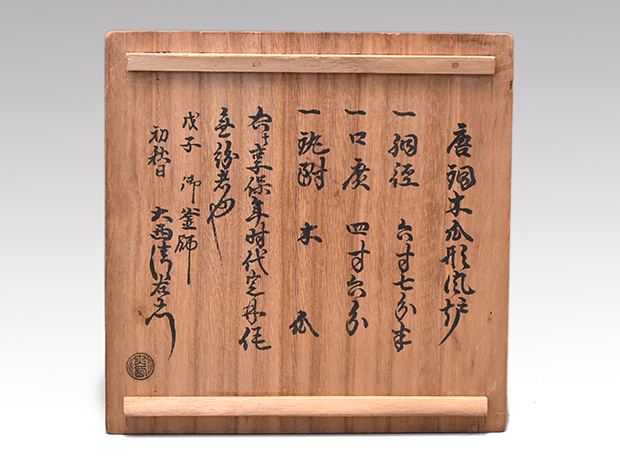 唐銅木瓜形風炉
一胴径 六寸七分半
一口廣 四寸六分
一銑附 木瓜
右者享保年時代定林作
無紛者也
戊子 御釜師
初秋日 大西清右衛門